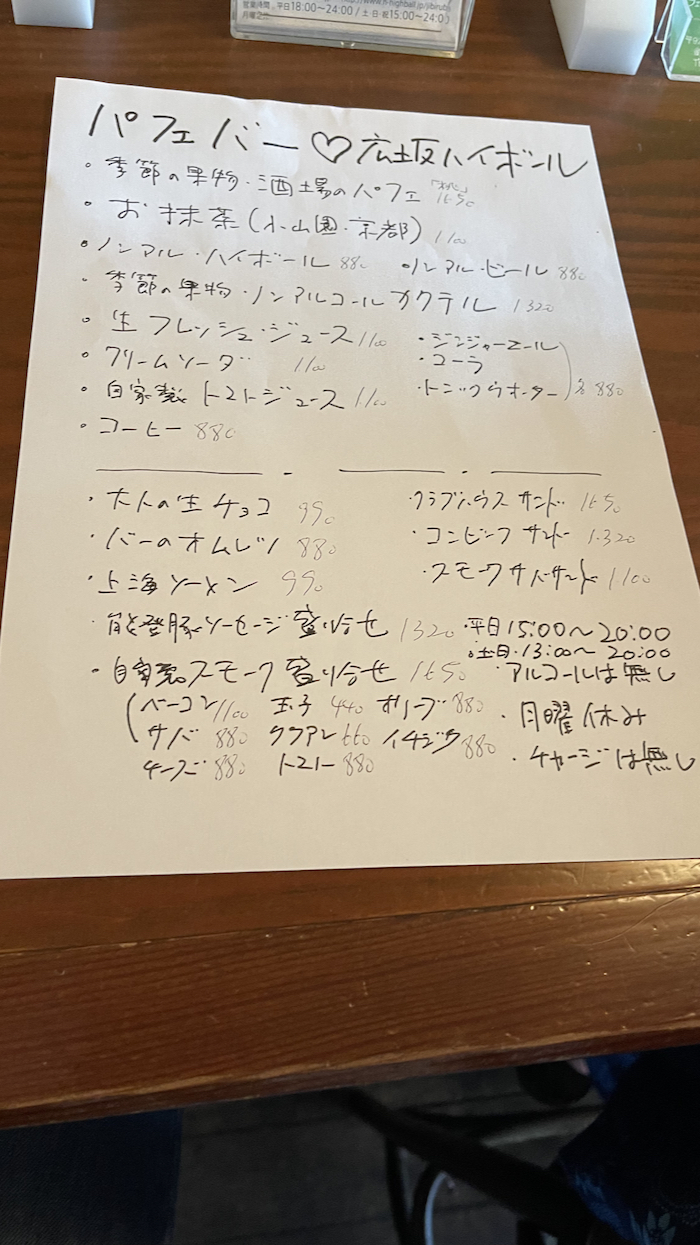 営業時間 平日18:00～24:00 / 土・日・祝15:00～24:0
パフェバー♡広坂ハイボール
・季節の果物・酒場のパフェ「桃」1650
・お抹茶(小山園・京都) 1100
・ノンアル・ハイボール 880 ・ノンアル・ビール 880
・季節の果物・ノンアルコールカクテル 1320
・生フレッシュ・ジュース 1100 ・ジンジャーエール
・クリームソーダ 1100 ・コーラ
・自家製トマトジュース 1100 ・トニックウォーター 各880
・コーヒー 880
・大人の生チョコ 990 ・クラブハウスサンド 1650
・バーのオムレツ 880 ・コンビーフサンド 1320
・上海ソーメン 990 ・スモークサバサンド 1100
・能登豚ソーセージ盛り合せ 1320 ・平日15:00～20:00
・土日・13:00～20:00
・自家製スモーク盛り合せ 1650 ・アルコールは無し
(ベーコン 1100 玉子 440 オリーブ 880 ・月曜休み
サバ 880 タクアン 660 イチジク 880
チーズ 880 トマト 880 ・チャージは無し